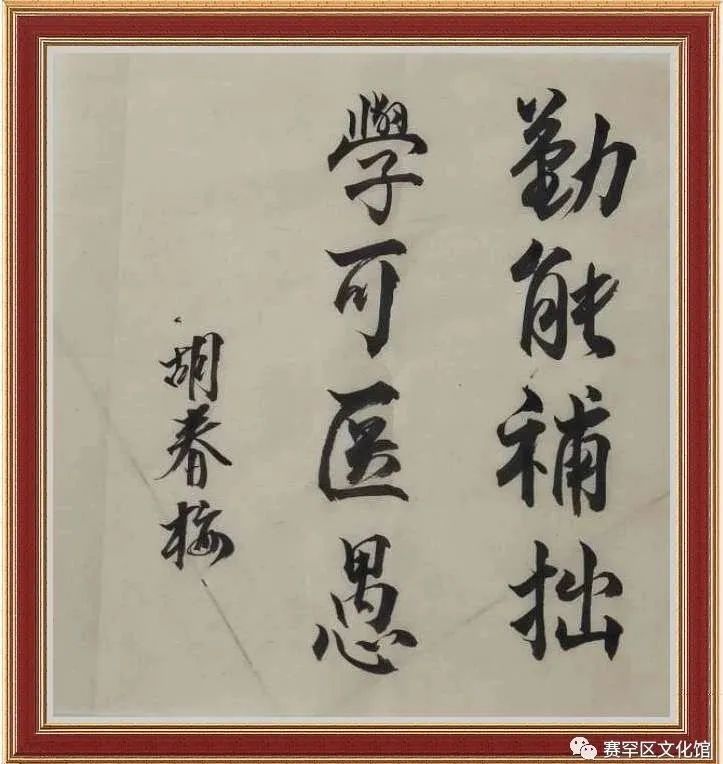 勤能補拙
學可医愚
胡春梅
赛罕区文化馆